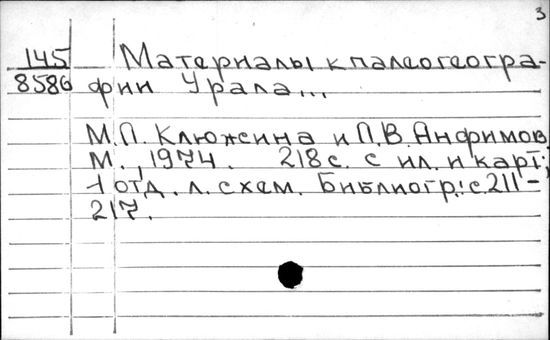 3
145 Материалы к палеогеогра-
8586 фии Урала...
М.Л. Клюжина и Л.В. Анфимов
М., 1974. 218 с. с ил. и карт;
1 отд. л. схем. Библиогр.: с. 211-
217.